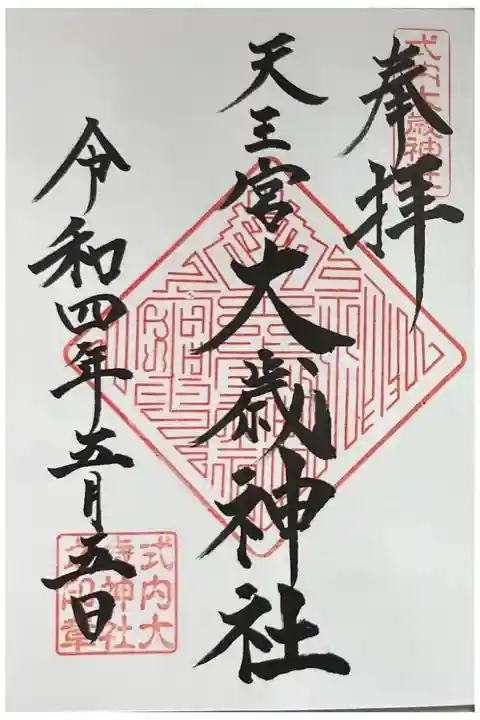 奉拝
式内大歳神社
天王宮大歳神社
令和四年五月五日
式内大
歳神社